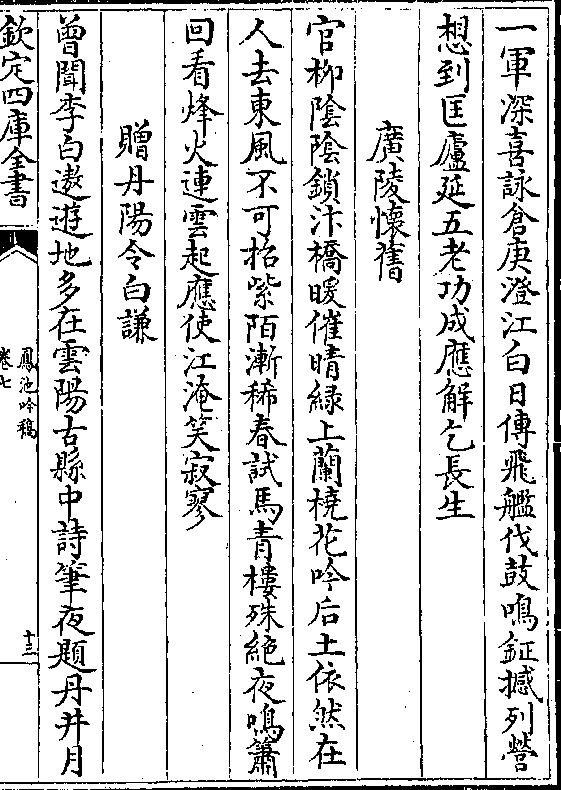 一軍深喜詠倉庚澄江白日傳飛艦伐鼓鳴鉦撼列營
想到匡廬延五老功成應解乞長生
廣陵懷舊
官柳陰陰鎖汴橋暖催晴綠上蘭橈花吟后土依然在
人去東風不可招紫陌漸稀春試馬青樓殊絶夜鳴簫
回看烽火連雲起應使江淹笑寂寥
贈丹陽令白謙
曾聞李白遨遊地多在雲陽古縣中詩筆夜題丹井月
欽定四庫全書
鳳池吟稿
卷七
十三